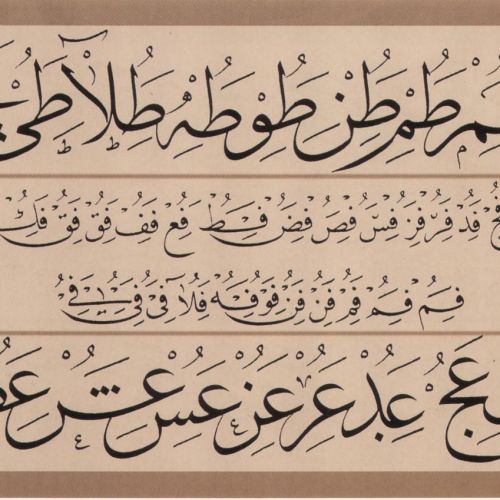 طم طن طو طه طلا طي
فد فر فز فس فص فض فط فع فف فق فق فك
فم فم فم فن فن فو فه فلا في في في
عج عد عر عز عس عش